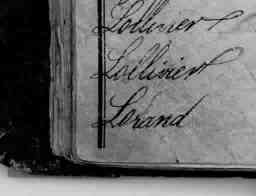 Lollivier
Lollivier
Lorand